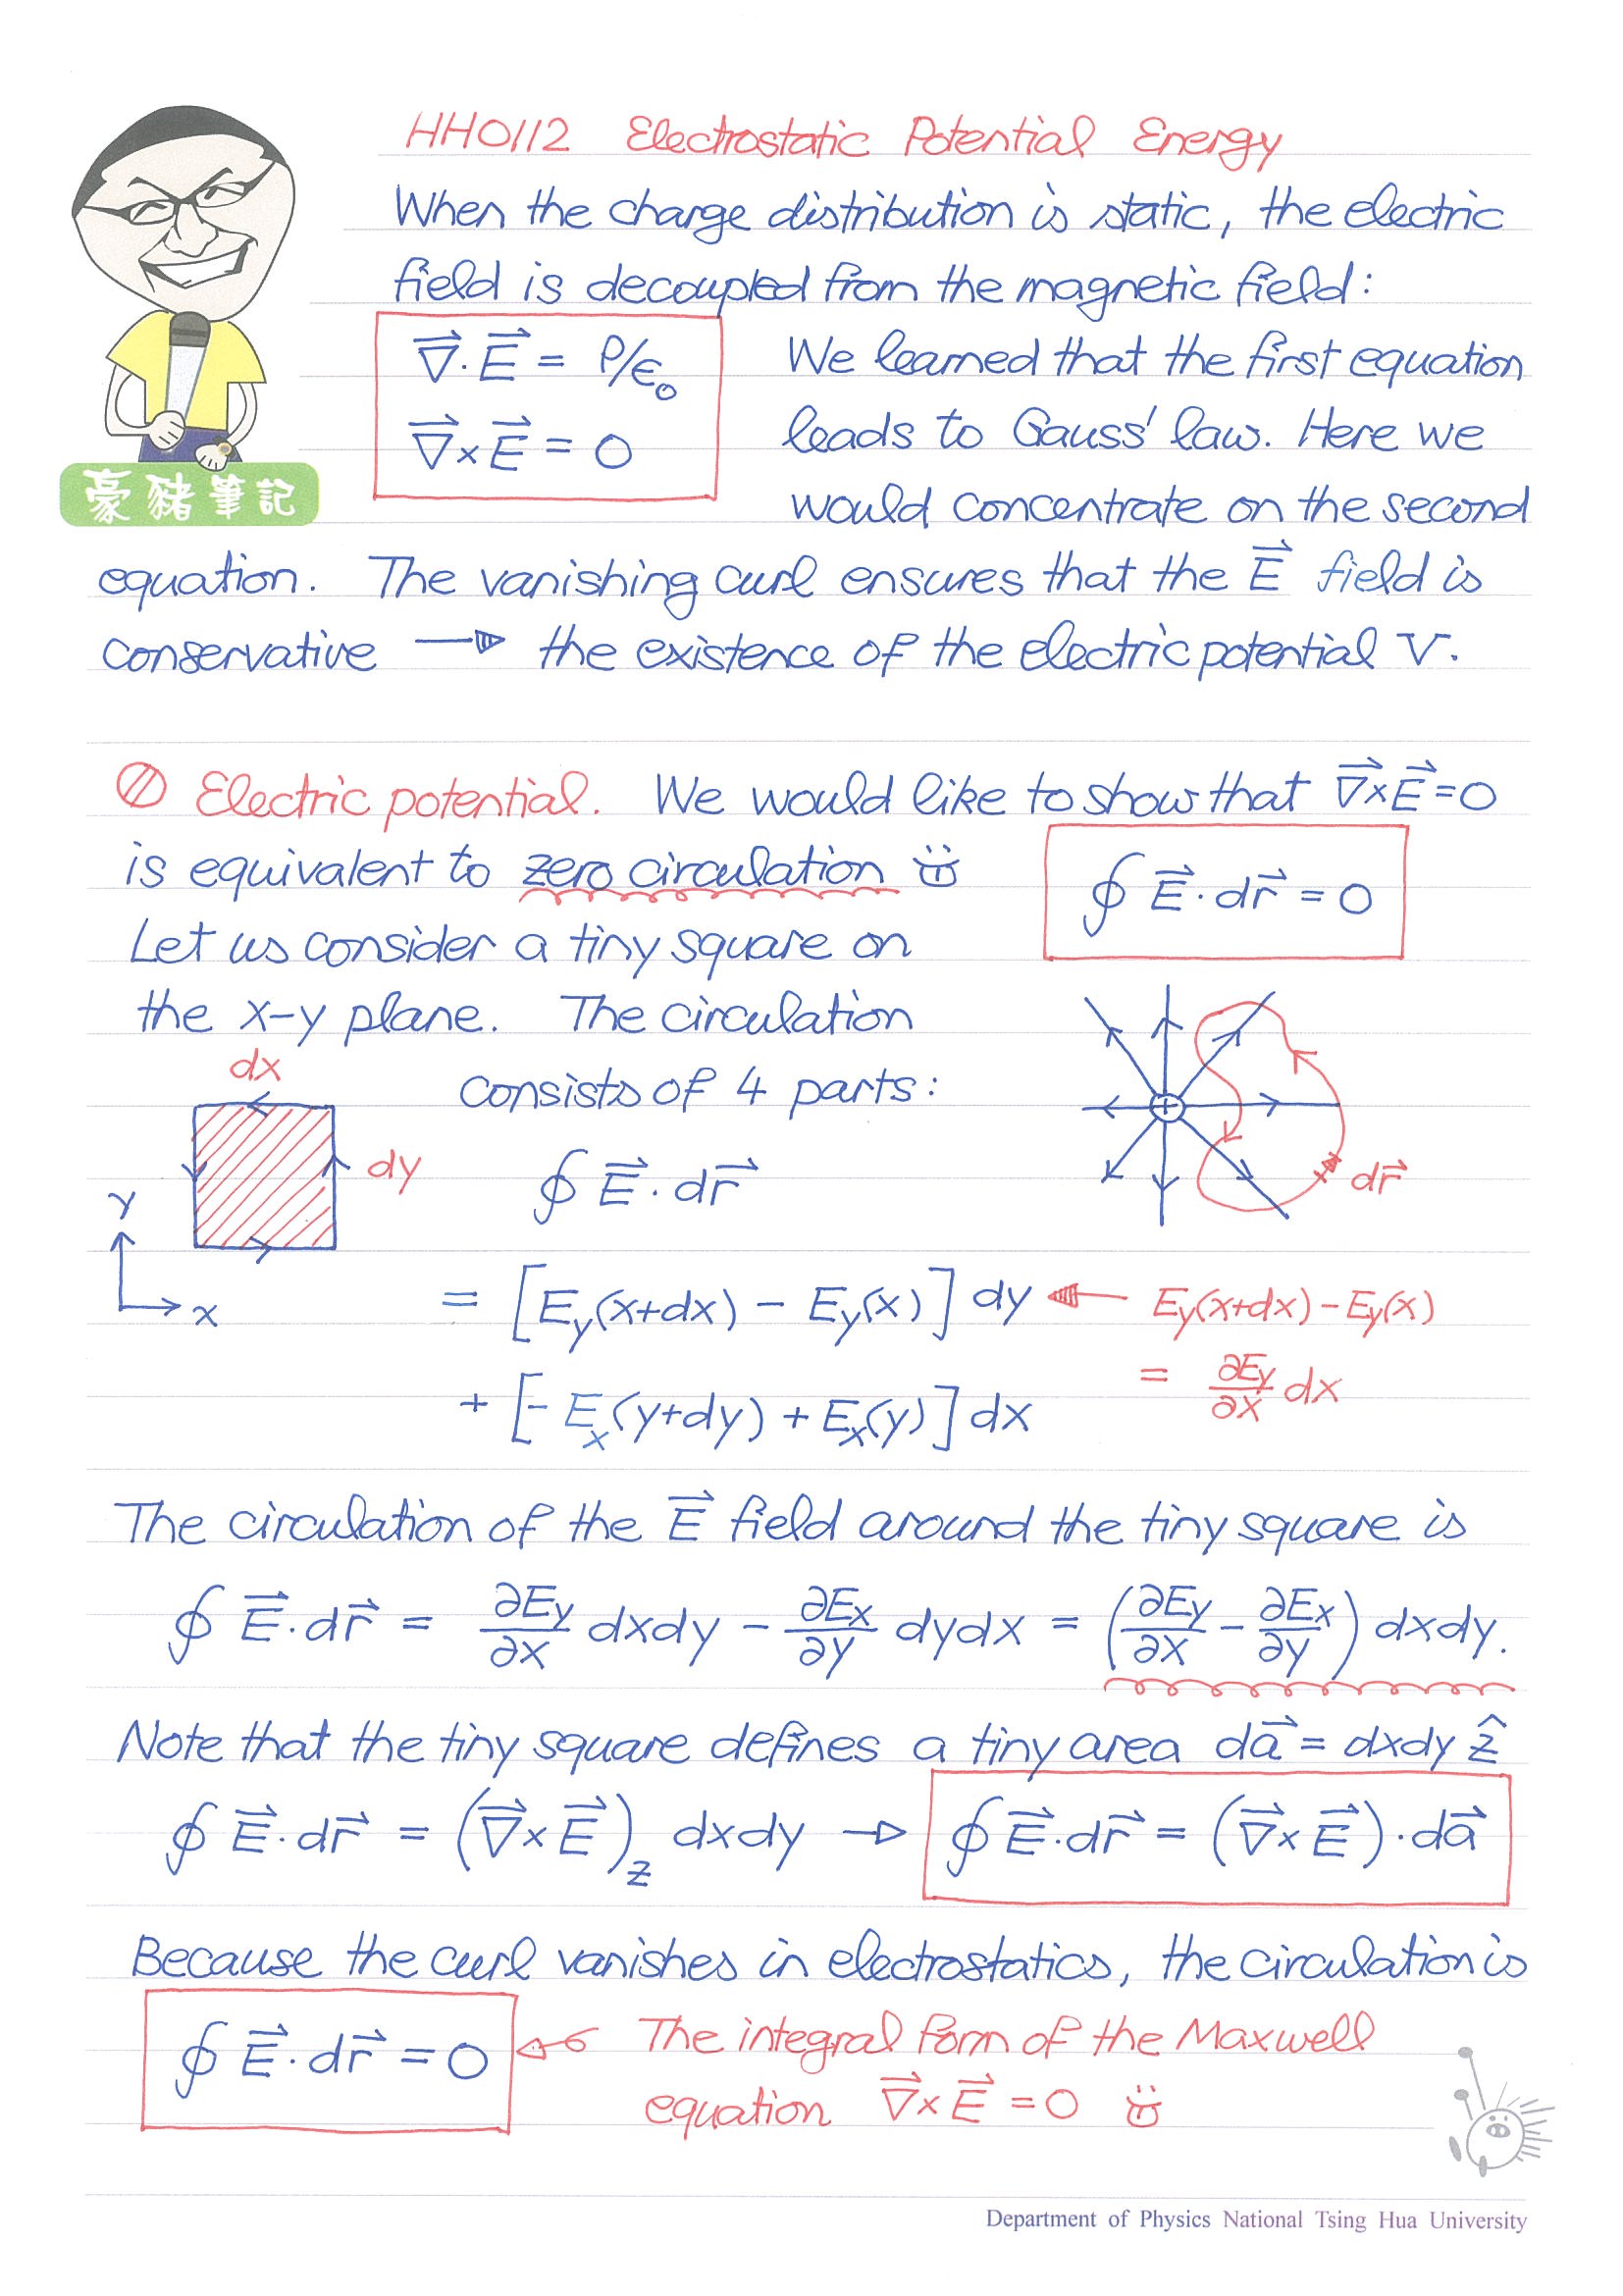 HH0112 Electrostatic Potential Energy
When the charge distribution is static, the electric
field is decoupled from the magnetic field:
∇⃗·E⃗ = ρ/ε₀
∇⃗×E⃗ = 0
We learned that the first equation
leads to Gauss' law. Here we
would concentrate on the second
豪豬筆記
equation. The vanishing curl ensures that the E⃗ field is
conservative → the existence of the electric potential V.
Electric potential. We would like to show that ∇⃗×E⃗=0
is equivalent to zero circulation
∮ E⃗·dr⃗ = 0
Let us consider a tiny square on
the x-y plane. The circulation
consists of 4 parts:
dx
dy
y
x
dr⃗
∮ E⃗·dr⃗
= [Ey(x+dx) - Ey(x)] dy ← Ey(x+dx) - Ey(x)
= ∂Ey/∂x dx
+ [- Ex(y+dy) + Ex(y)] dx
The circulation of the E⃗ field around the tiny square is
∮ E⃗·dr⃗ = ∂Ey/∂x dxdy - ∂Ex/∂y dydx = (∂Ey/∂x - ∂Ex/∂y) dxdy.
Note that the tiny square defines a tiny area da⃗ = dxdy ẑ
∮ E⃗·dr⃗ = (∇⃗×E⃗)z dxdy → ∮ E⃗·dr⃗ = (∇⃗×E⃗)·da⃗
Because the curl vanishes in electrostatics, the circulation is
∮ E⃗·dr⃗ = 0 ← The integral form of the Maxwell
equation ∇⃗×E⃗ = 0
Department of Physics National Tsing Hua University